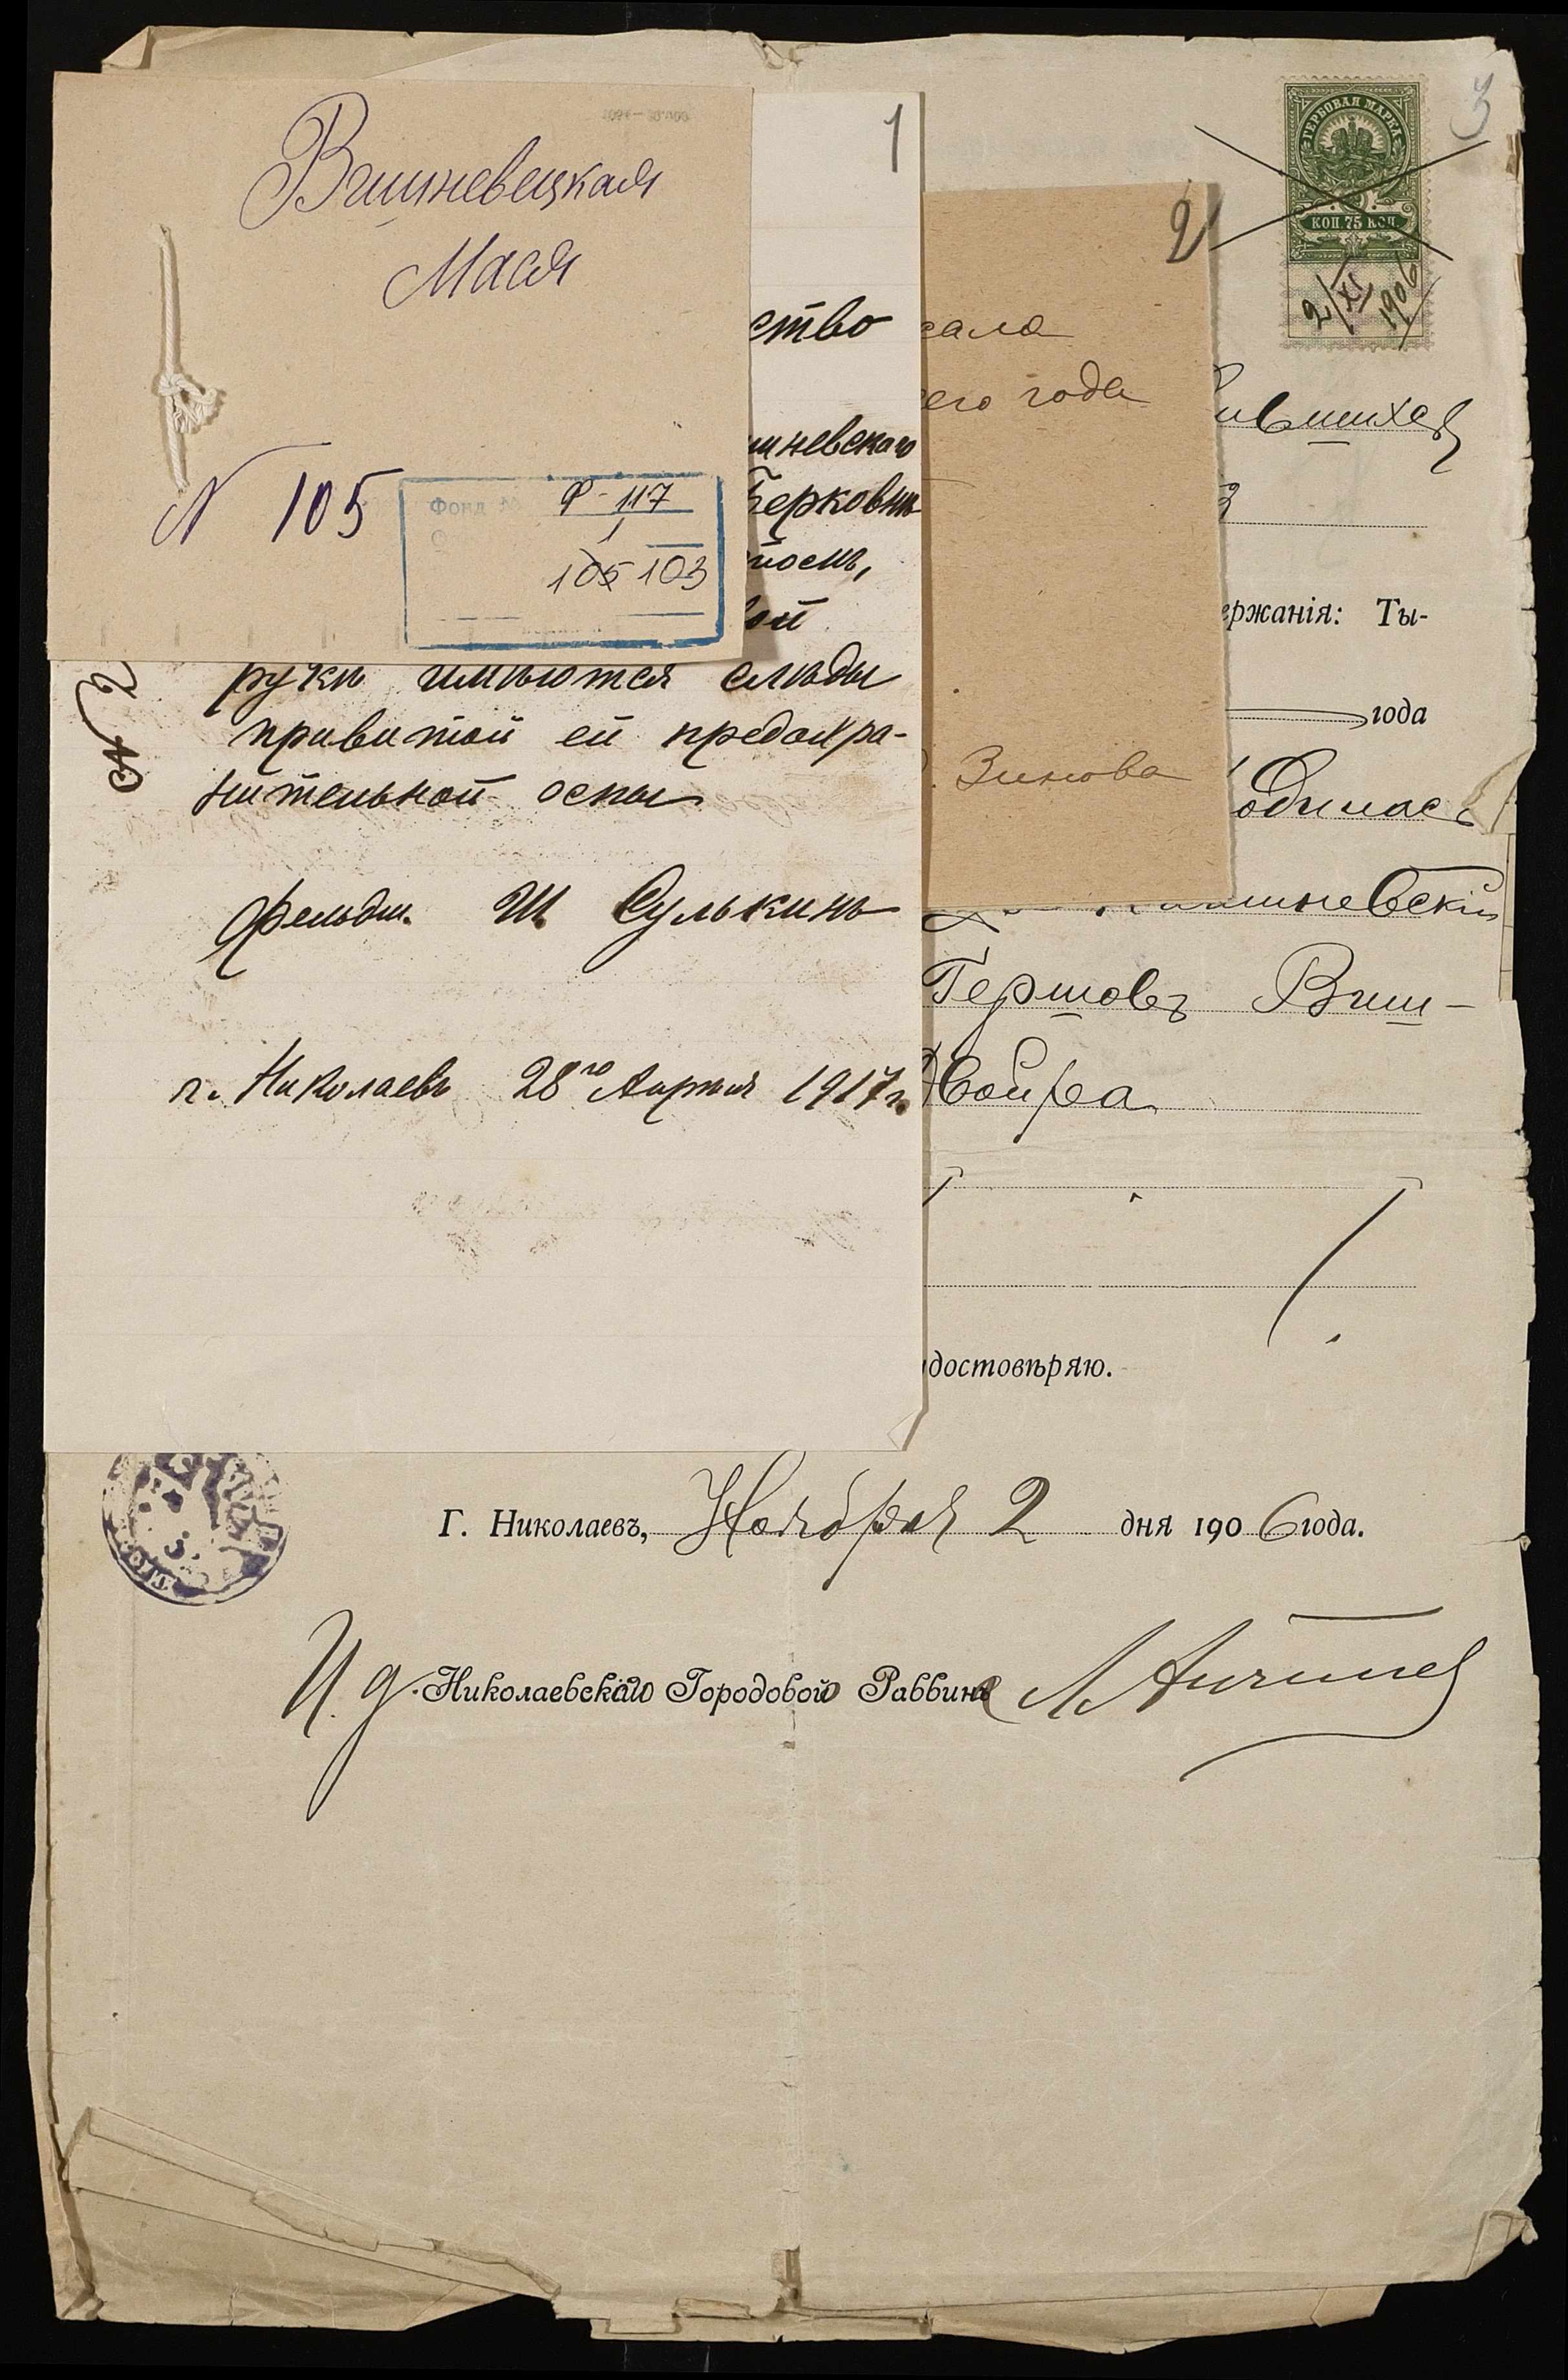 Вишневецкая
Мася
N 105
Фонд №
Ф-117
1
105 103
1
ство
шневскаго
Берковны
ной
руки имѣются слѣды
привитой ей предохра-
нительной оспы
Фельдш. Ш. Сулькинъ
г. Николаевъ 28го Апрѣля 1917 г.
N 2
2
сала
его года
Зинова
3
ГЕРБОВАЯ МАРКА
КОП. 75 КОП.
2/XI 1906
ержанія: Ты-
года
одилась
шневскій
Гершовъ Виш-
Двойра
достовѣряю.
Г. Николаевъ, Ноября 2 дня 1906 года.
И. д. Николаевскаго Городового Раввина